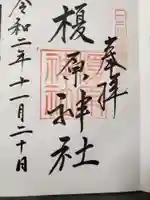 奉拝
榎原神社
令和二年十一月二十日